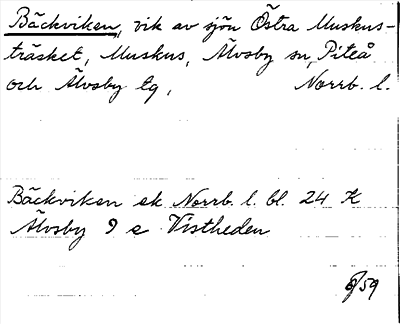 Bäckviken, vik av sjön Östra Muskus-
träsket, Muskus, Älvsby sn, Piteå
och Älvsby tg, Norrb. l.
Bäckviken ek Norrb. l. bl. 24 K
Älvsby 9 e Vistheden
8/59